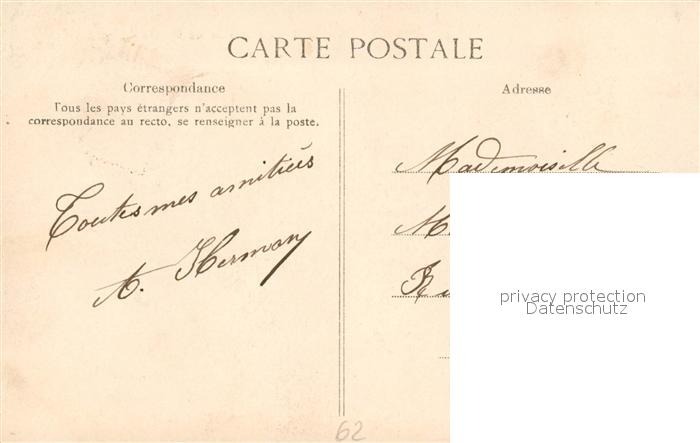 CARTE POSTALE
Correspondance
Tous les pays étrangers n'acceptent pas la
correspondance au recto, se renseigner à la poste.
Toutes mes amitiés
A. Hermary
Adresse
Mademoiselle
M
R
privacy protection
Datenschutz
62